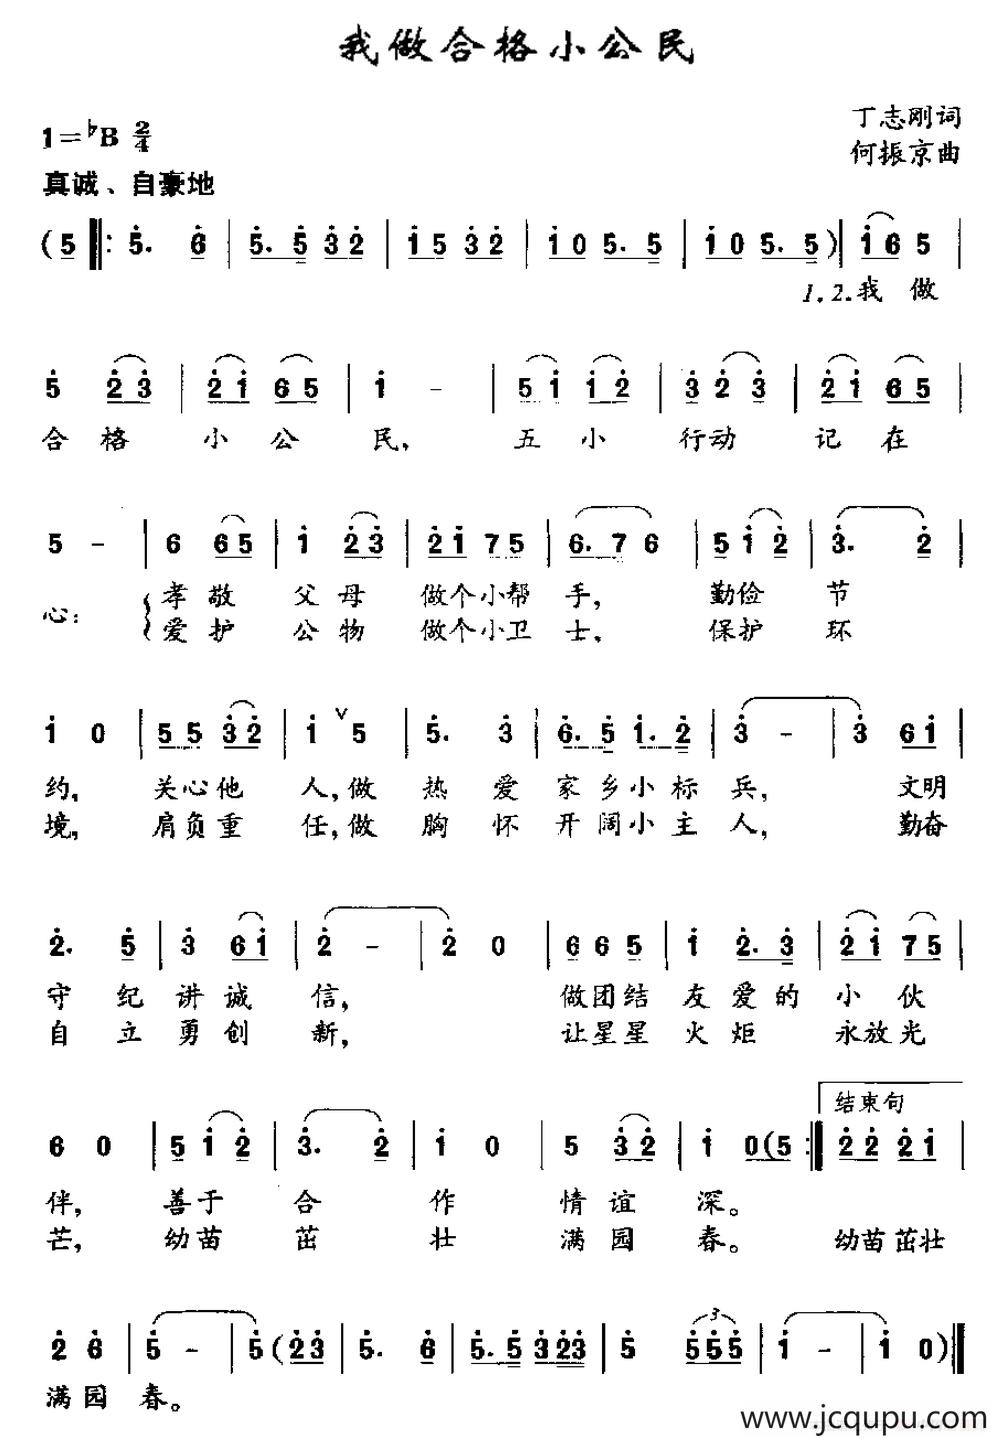 我做合格小公民
丁志刚词
1=♭B 2/4
何振京曲
真诚、自豪地
(5 ‖: 5. 6 | 5. 5 3 2 | 1 5 3 2 | 1 0 5. 5 | 1 0 5. 5) | 1 6 5 |
1.2.我 做
5 2 3 | 2 1 6 5 | 1 - | 5 1 1 2 | 3 2 3 | 2 1 6 5 |
合 格 小 公 民, 五 小 行动 记 在
5 - | 6 6 5 | 1 2 3 | 2 1 7 5 | 6. 7 6 | 5 1 2 | 3. 2 |
心: 孝 敬 父 母 做个小帮 手, 勤俭 节
爱 护 公 物 做个小卫 士, 保护 环
1 0 | 5 5 3 2 | 1 ∨ 5 | 5. 3 | 6. 5 1. 2 | 3 - | 3 6 1 |
约, 关心他 人,做 热 爱 家乡小标 兵, 文明
境, 肩负重 任,做 胸 怀 开阔小主 人, 勤奋
2. 5 | 3 6 1 | 2 - | 2 0 | 6 6 5 | 1 2. 3 | 2 1 7 5 |
守 纪 讲诚 信, 做团结 友爱的 小 伙
自 立 勇创 新, 让星星 火 炬 永放光
结束句
6 0 | 5 1 2 | 3. 2 | 1 0 | 5 3 2 | 1 0 (5 :‖ 2 2 2 1 |
伴, 善于 合 作 情谊 深。
芒, 幼苗 茁 壮 满园 春。 幼苗茁壮
2 6 | 5 - | 5 (2 3 | 5. 6 | 5. 5 3 2 3 | 5 5 5 5 | 1 - | 1 0) ‖
3
满园 春。
www.jcqupu.com